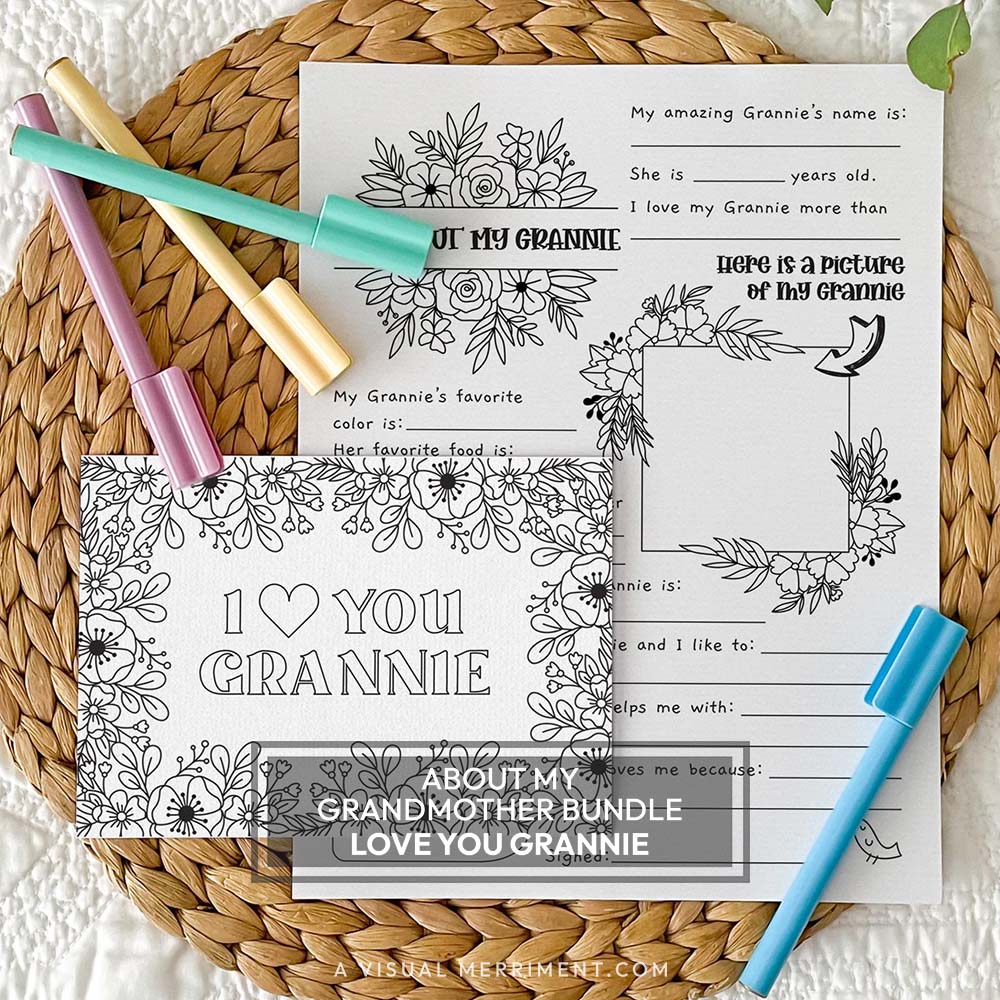 My amazing Grannie's name is:
She is years old.
I love my Grannie more than
MY GRANNIE
Here is a picture
of my Grannie
My Grannie's favorite
color is:
Her favorite food is:
is:
and I like to:
me with:
because:
Signed:
I YOU
GRANNIE
ABOUT MY
GRANDMOTHER BUNDLE
LOVE YOU GRANNIE
A VISUAL MERRIMENT.COM